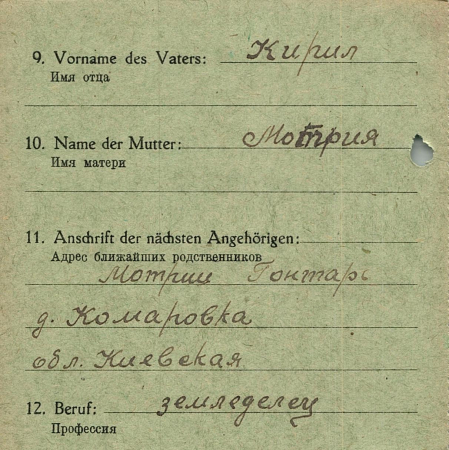 9. Vorname des Vaters: Кирил
Имя отца
10. Name der Mutter: Мотрия
Имя матери
11. Anschrift der nächsten Angehörigen:
Адрес ближайших родственников
Мотрии Гонтарь
д. Комаровка
обл. Киевская
12. Beruf: земледелец
Профессия